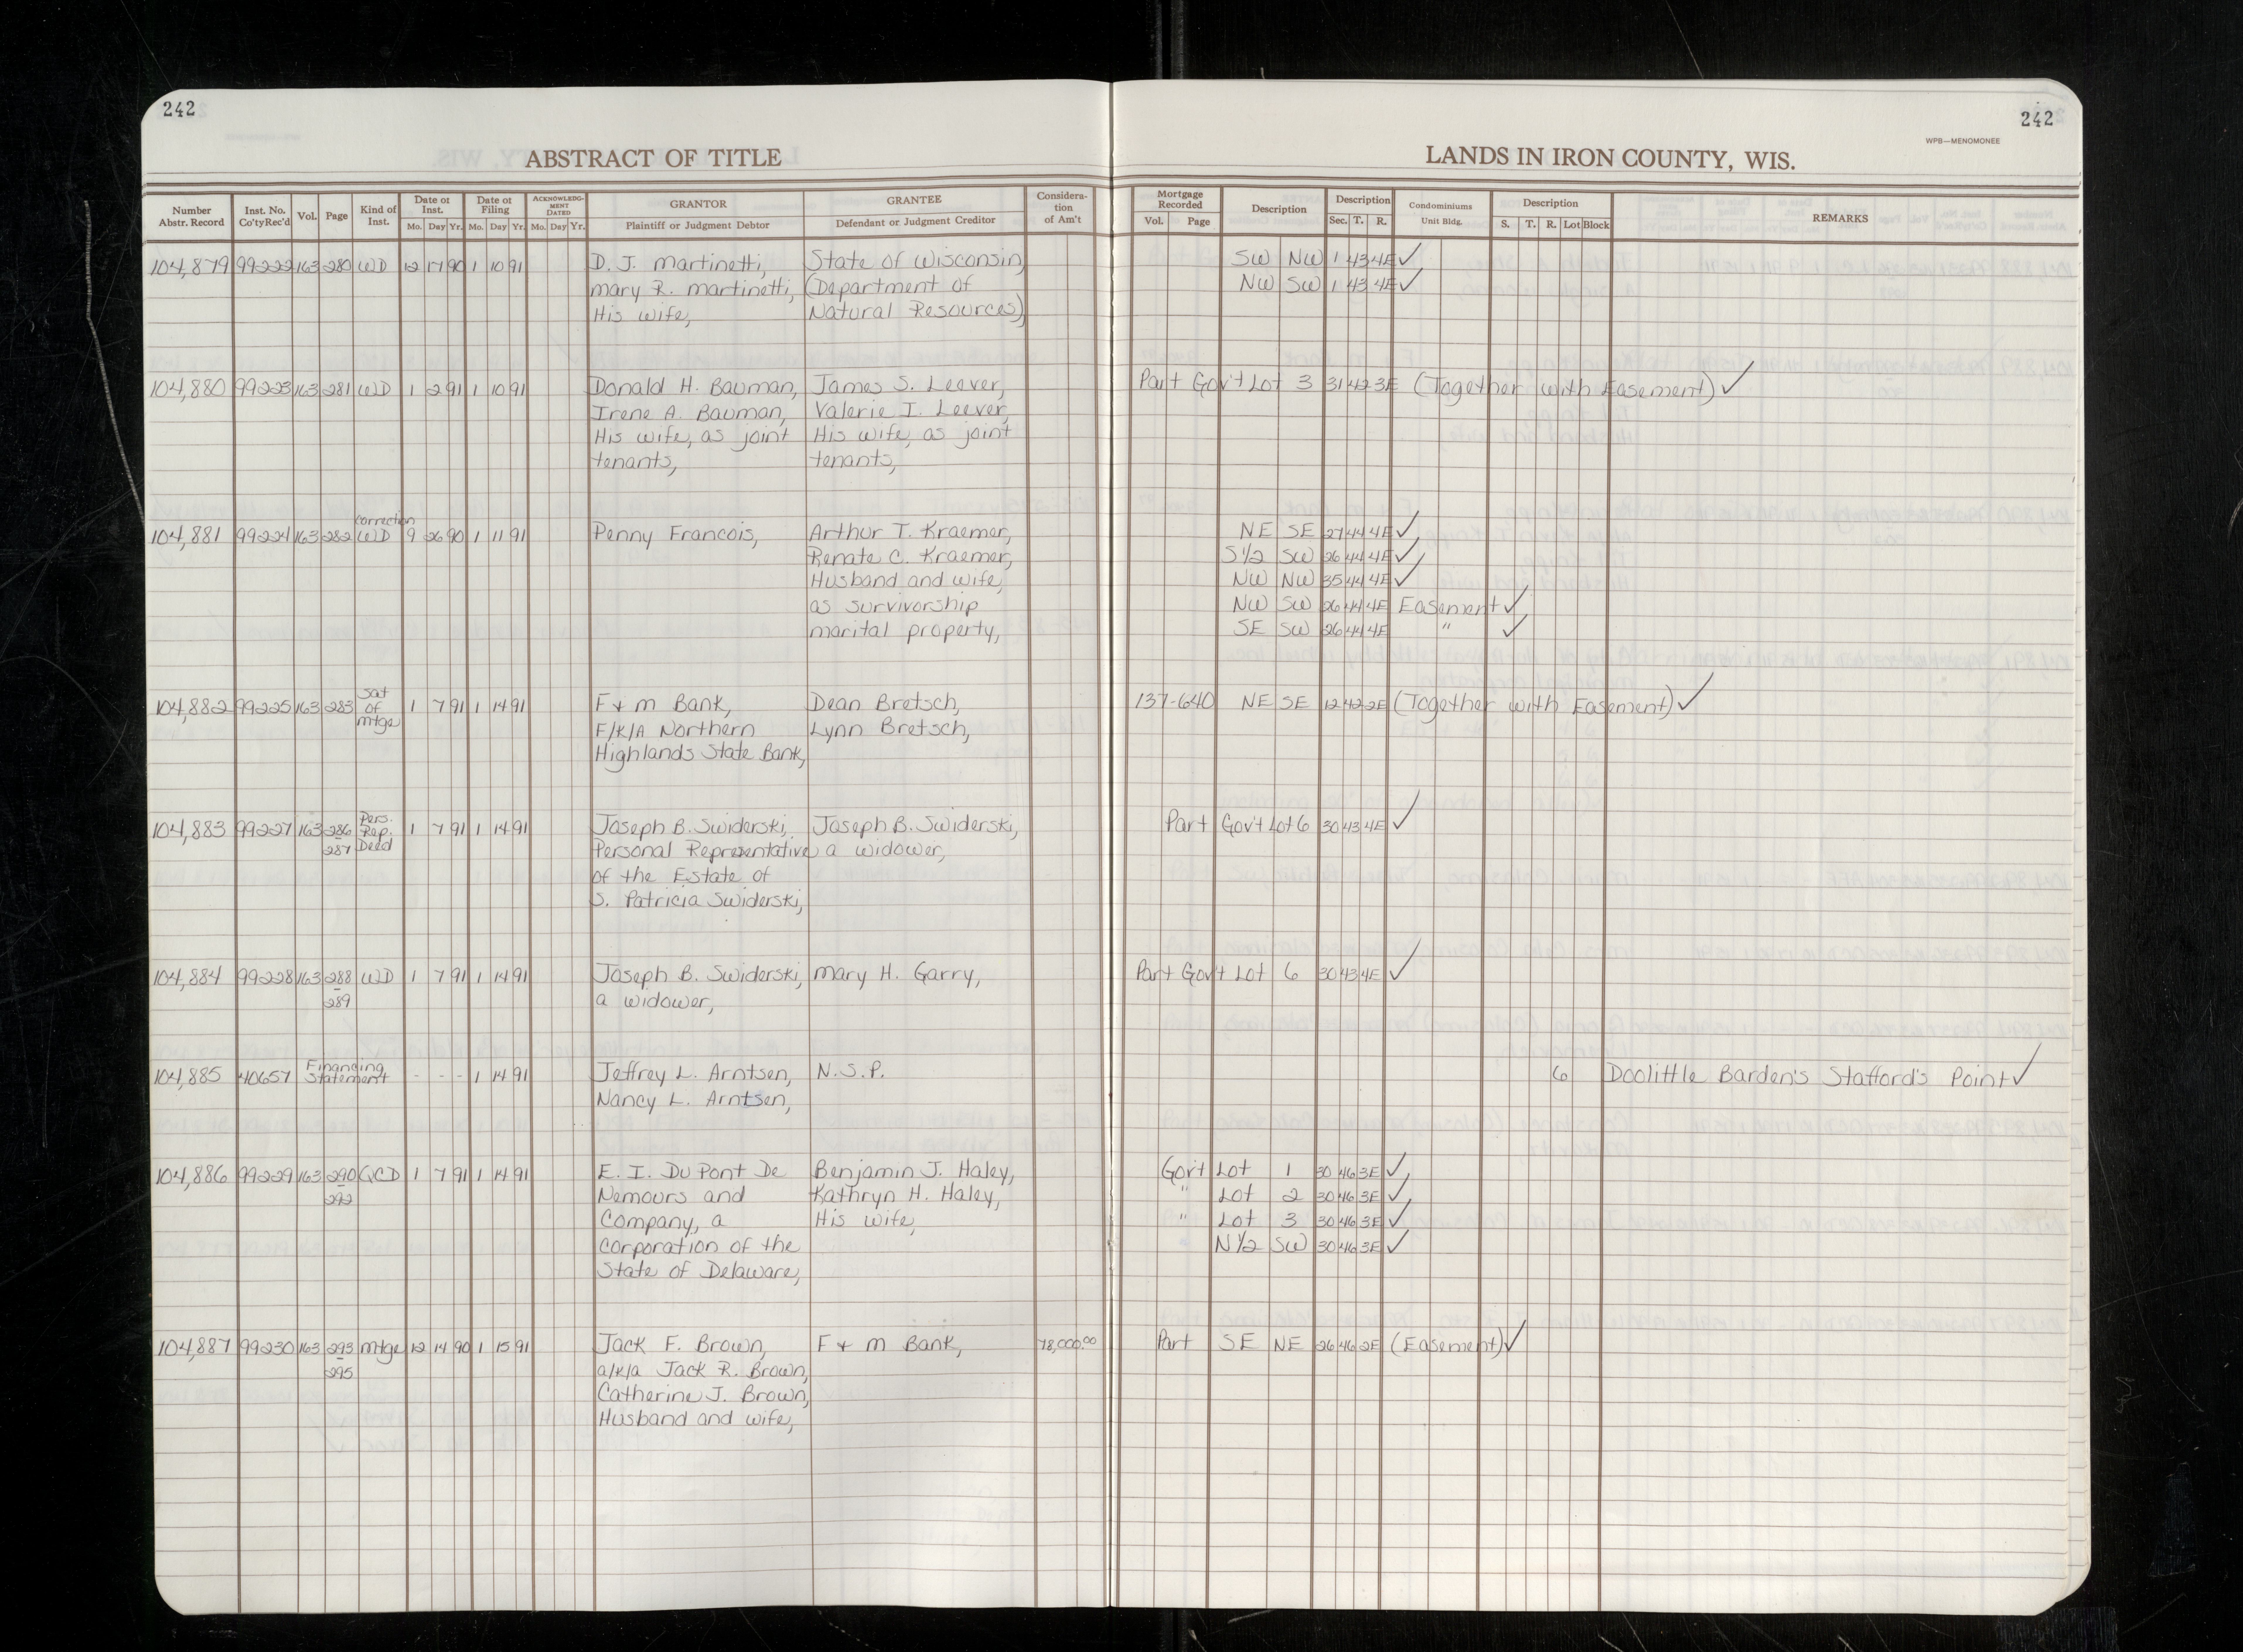 242
242
WPB—MENOMONEE
ABSTRACT OF TITLE
LANDS IN IRON COUNTY, WIS.
Number Abstr. Record | Inst. No. Co'tyRec'd | Vol. | Page | Kind of Inst. | Date of Inst. Mo. Day Yr. | Date of Filing Mo. Day Yr. | ACKNOWLEDGMENT DATED Mo. Day Yr. | GRANTOR Plaintiff or Judgment Debtor | GRANTEE Defendant or Judgment Creditor | Consideration of Am't | Mortgage Recorded Vol. Page | Description | Description Sec. T. R. | Condominiums Unit Bldg. | Description S. T. R. Lot Block | REMARKS
104,879 99222 163 280 WD 12 17 90 1 10 91 D. J. Martinetti, State of Wisconsin, SW NW 1 43 4E ✓
Mary R. Martinetti, (Department of NW SW 1 43 4E ✓
His wife, Natural Resources)
104,880 99223 163 281 WD 1 2 91 1 10 91 Donald H. Bauman, James S. Leever, Part Gov't Lot 3 31 42 3E (Together with Easement) ✓
Irene A. Bauman, Valerie I. Leever,
His wife, as joint His wife, as joint
tenants, tenants,
correction
104,881 99224 163 282 WD 9 26 90 1 11 91 Penny Francois, Arthur T. Kraemer, NE SE 27 44 4E ✓
Renate C. Kraemer, S1/2 SW 26 44 4E ✓
Husband and wife, NW NW 35 44 4E ✓
as survivorship NW SW 26 44 4E Easement ✓
marital property, SE SW 26 44 4E " ✓
Sat
104,882 99225 163 283 of 1 7 91 1 14 91 F & M Bank, Dean Bretsch, 137-640 NE SE 12 42 2E (Together with Easement) ✓
mtge
F/K/A Northern Lynn Bretsch,
Highlands State Bank,
Pers.
104,883 99227 163 286 Rep. 1 7 91 1 14 91 Joseph B. Swiderski, Joseph B. Swiderski, Part Gov't Lot 6 30 43 4E ✓
287 Deed Personal Representative a widower,
of the Estate of
S. Patricia Swiderski,
104,884 99228 163 288 WD 1 7 91 1 14 91 Joseph B. Swiderski, Mary H. Garry, Part Gov't Lot 6 30 43 4E ✓
289 a widower,
Financing
104,885 40657 Statement - - - 1 14 91 Jeffrey L. Arntsen, N.S.P. 6 Doolittle Barden's Stafford's Point ✓
Nancy L. Arntsen,
104,886 99229 163 290 QCD 1 7 91 1 14 91 E. I. Du Pont De Benjamin J. Haley, Gov't Lot 1 30 46 3E ✓
292 Nemours and Kathryn H. Haley, " Lot 2 30 46 3E ✓
Company, a His wife, " Lot 3 30 46 3E ✓
Corporation of the N1/2 SW 30 46 3E ✓
State of Delaware,
104,887 99230 163 293 mtge 12 14 90 1 15 91 Jack F. Brown, F & M Bank, 78,000.00 Part SE NE 26 46 2E (Easement) ✓
295 a/k/a Jack R. Brown,
Catherine J. Brown,
Husband and wife,